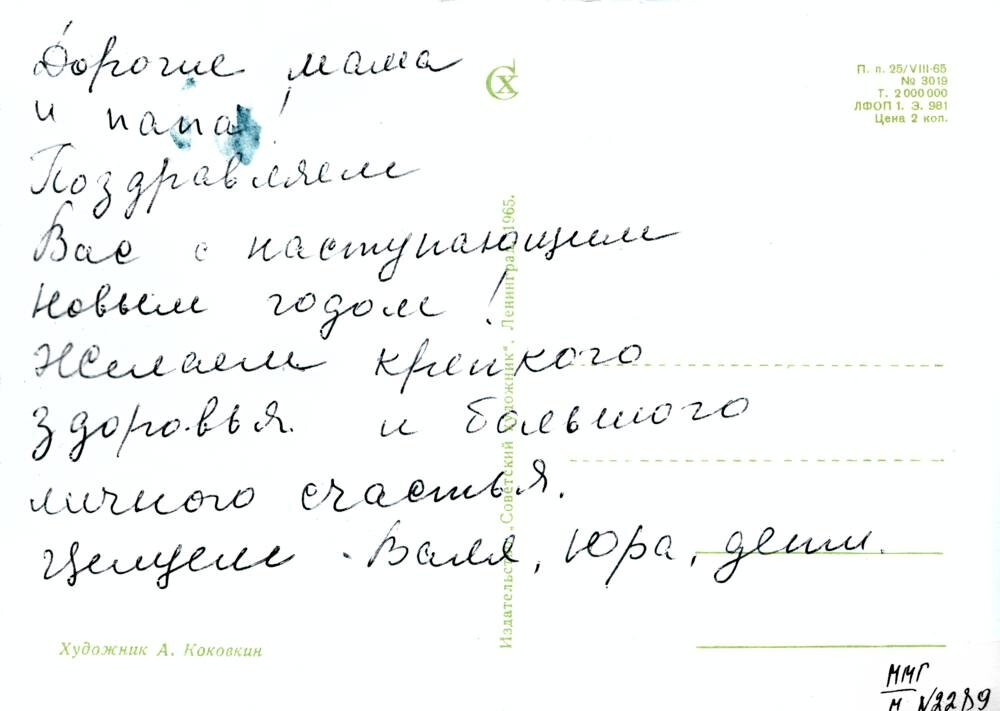 Дорогие мама
и папа!
Поздравляем
Вас с наступающим
Новым годом!
Желаем крепкого
здоровья и большого
личного счастья.
Целуем Валя, Юра, дети.
СХ
П. п. 25/VIII-65
№ 3019
Т. 2 000 000
ЛФОП 1. З. 981
Цена 2 коп.
Издательство „Советский художник“. Ленинград 1965.
Художник А. Коковкин
ММГ
М N2289